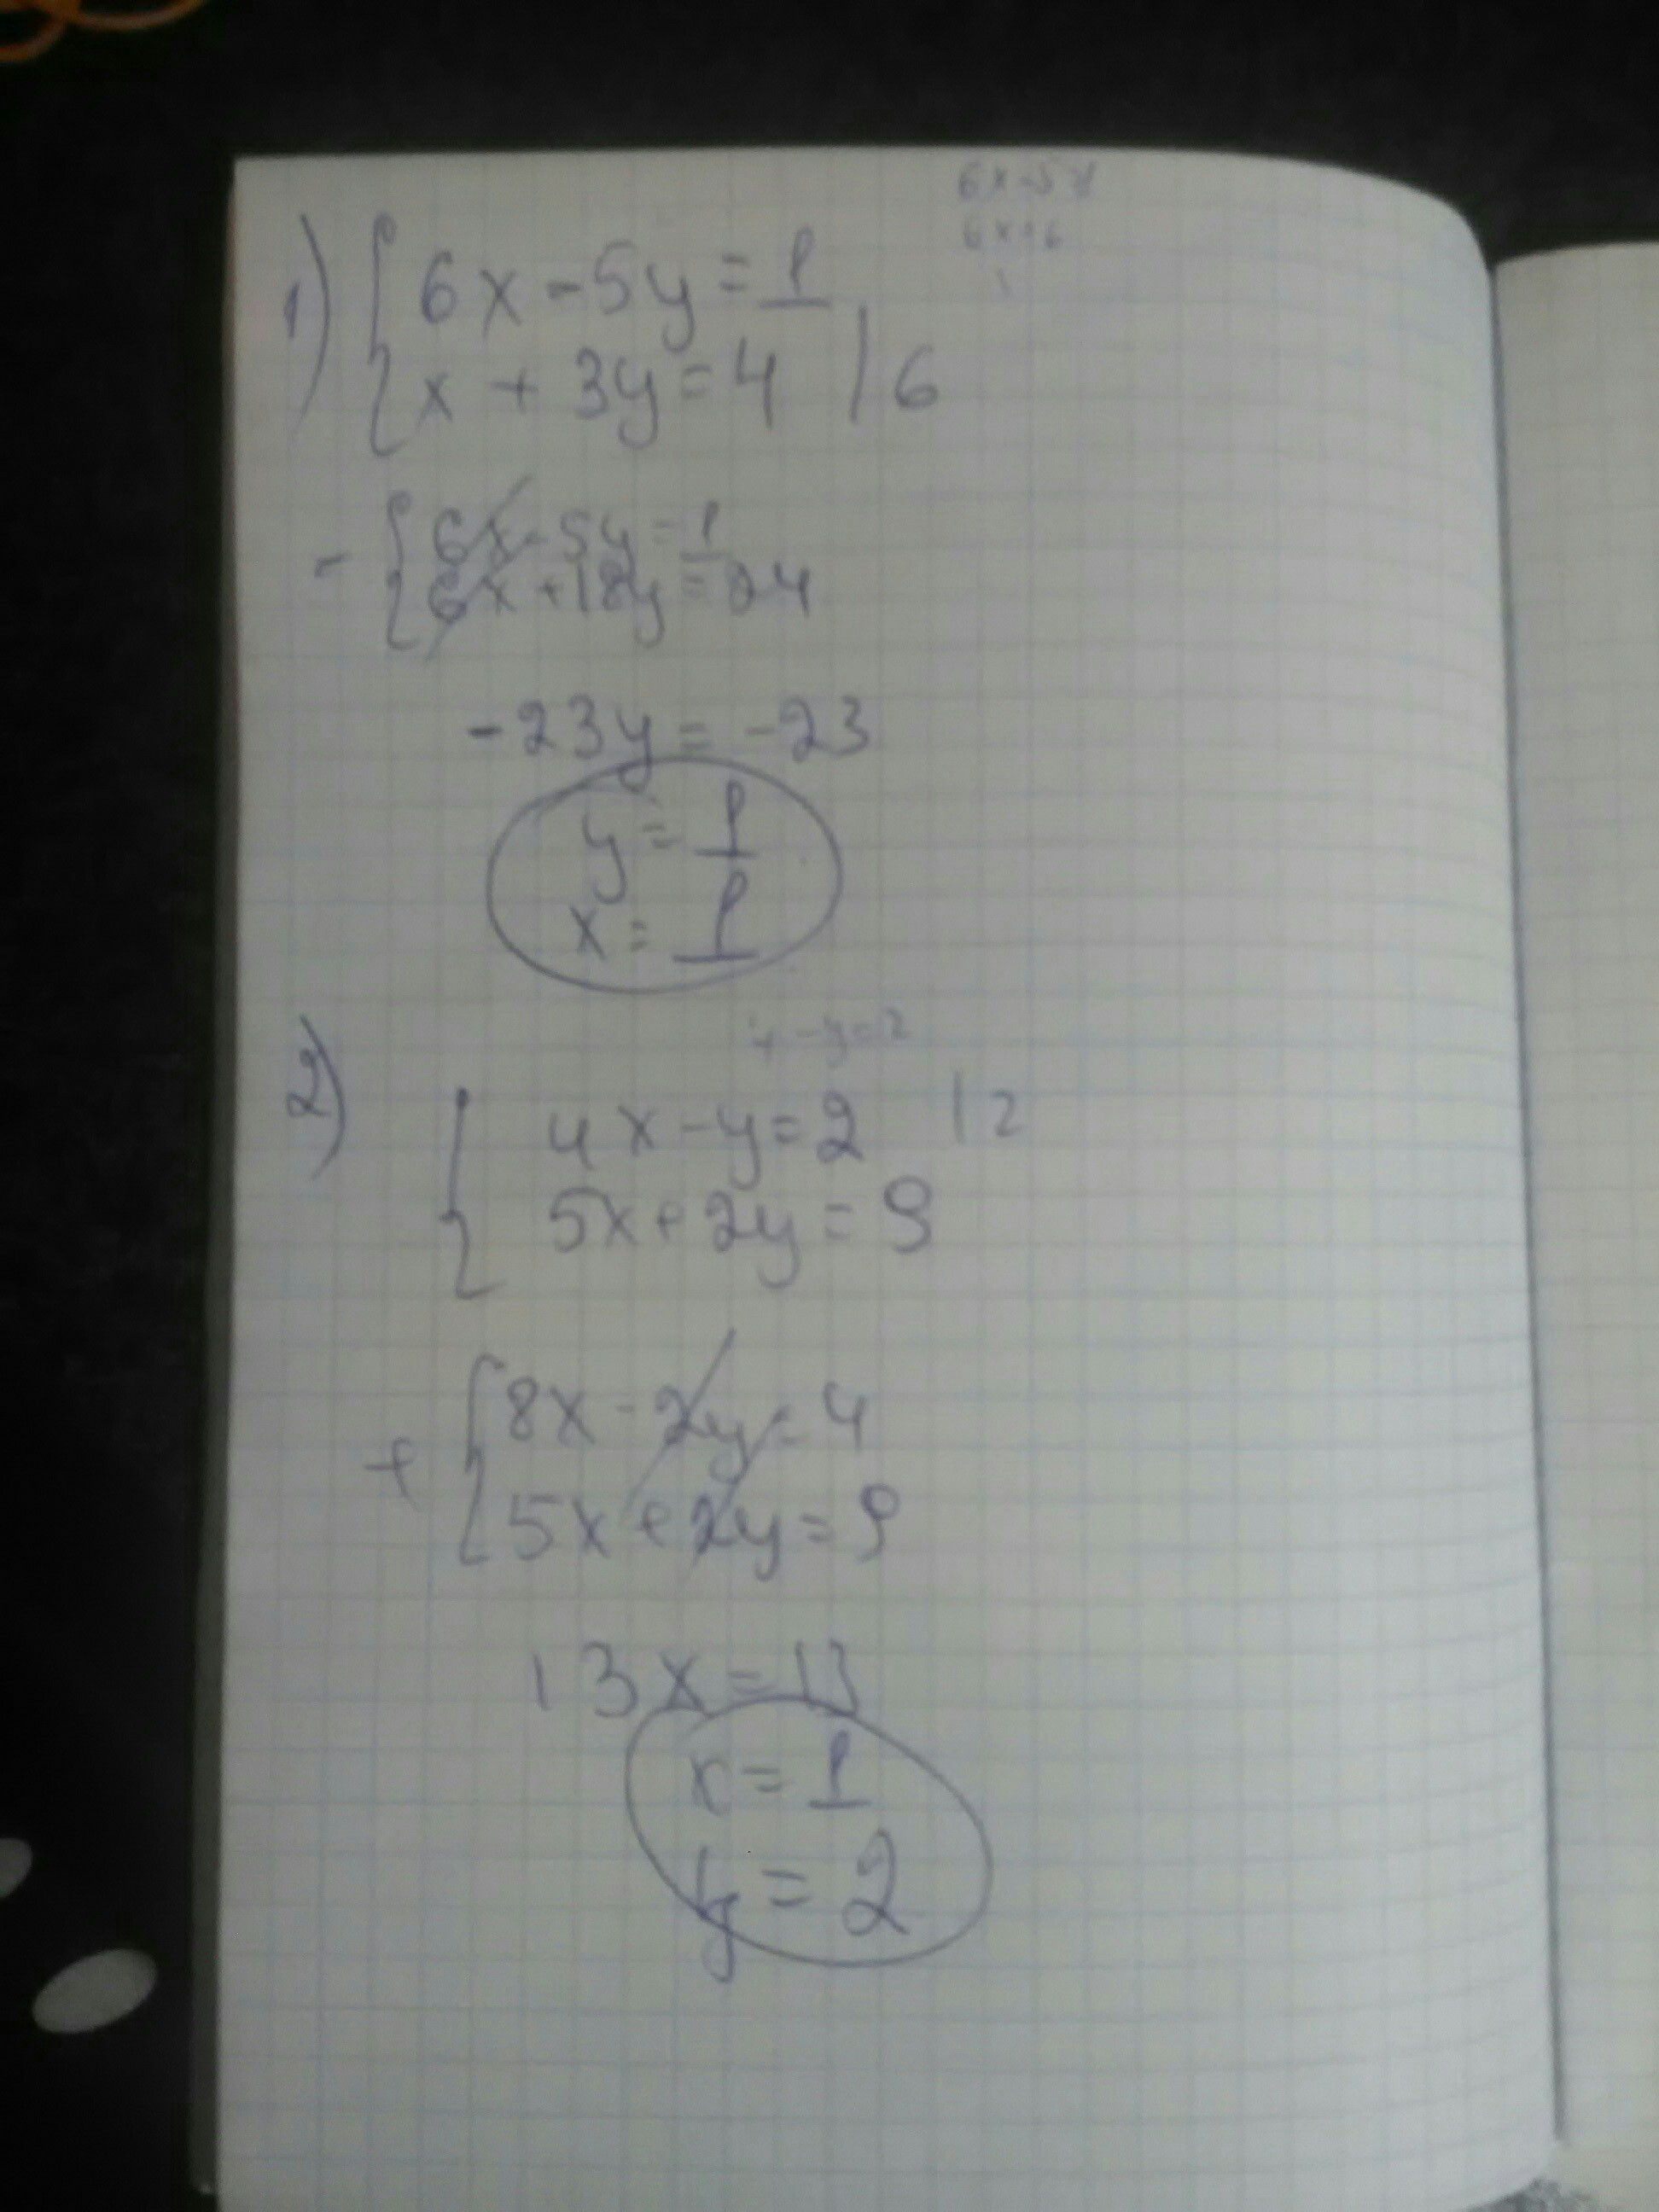 1) { 6x - 5y = 1
x + 3y = 4 | 6
- { 6x - 5y = 1
6x + 18y = 24
-23y = -23
y = 1
x = 1
2)
{ 4x - y = 2 | 2
5x + 2y = 9
+ { 8x - 2y = 4
5x + 2y = 9
13x = 13
x = 1
y = 2